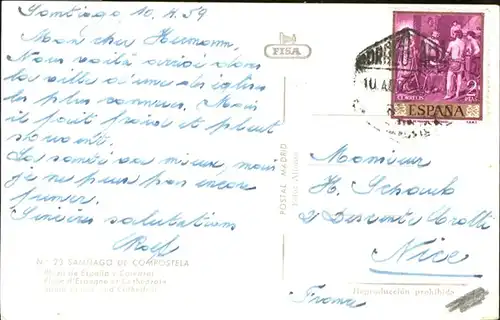 Santiago 10.4.59
Mon cher Hermann,
Nous voilà arrivé dans
la ville d'une des églises
les plus connues. Mais
il fait froid et pleut
souvent.
La santé va mieux, mais
je ne peux pas encore
fumer.
Sincères salutations
Rolf
Nº 23 SANTIAGO DE COMPOSTELA
Plaza de España y Catedral
Place d'Espagne et Cathédrale
and Cathedral
FISA
POSTAL MADRID
CORREOS
2
PTAS
ESPAÑA
Monsieur
H. Schaub
2 Descente Crotti
Nice
France
Reproducción prohibida